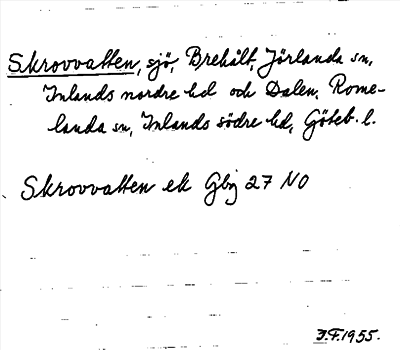 Skrovvatten, sjö, Brehålt, Jörlanda sn,
Inlands nordre hd och Dalen, Rome-
landa sn, Inlands södre hd, Göteb. l.
Skrovvatten ek Gbg 27 NO
J.F. 1955.